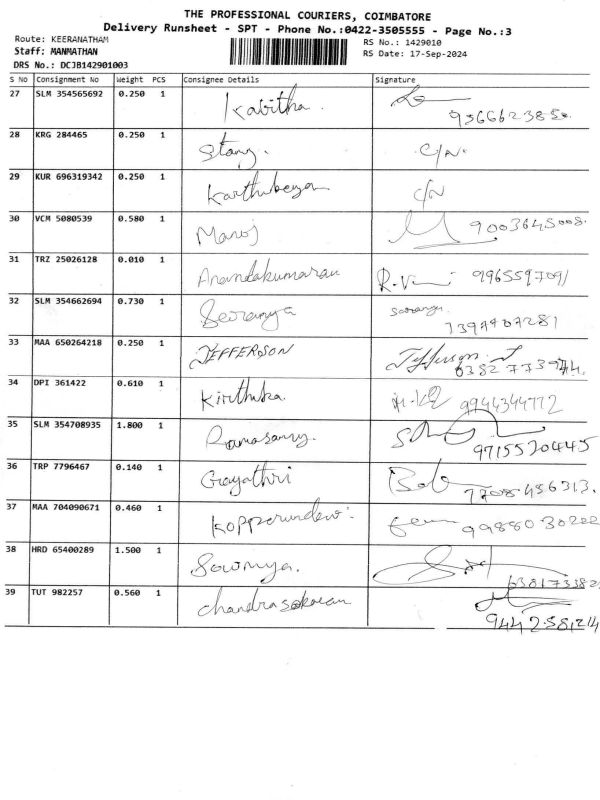 THE PROFESSIONAL COURIERS, COIMBATORE
Delivery Runsheet - SPT - Phone No.:0422-3505555 - Page No.:3
Route: KEERANATHAM
RS No.: 1429010
Staff: MANMATHAN
RS Date: 17-Sep-2024
DRS No.: DCJB142901003
S No Consignment No Weight PCS Consignee Details Signature
27 SLM 354565692 0.250 1 Kabitha.
28 KRG 284465 0.250 1 C/N.
29 KUR 696319342 0.250 1 Karthikeyan C/N
30 VCM 5080539 0.580 1 Manoj 9003645008.
31 TRZ 25026128 0.010 1 Anandakumaran 9965597091
32 SLM 354662694 0.730 1
33 MAA 650264218 0.250 1 JEFFERSON Jefferson J
34 DPI 361422 0.610 1 Kiruthika 9944344772
35 SLM 354708935 1.800 1 Ramasamy. 9715520445
36 TRP 7796467 0.140 1 Gayathri 7708456313.
37 MAA 704090671 0.460 1 Kopperundevi 9988030222
38 HRD 65400289 1.500 1 Sowmya.
39 TUT 982257 0.560 1 Chandrasekaran